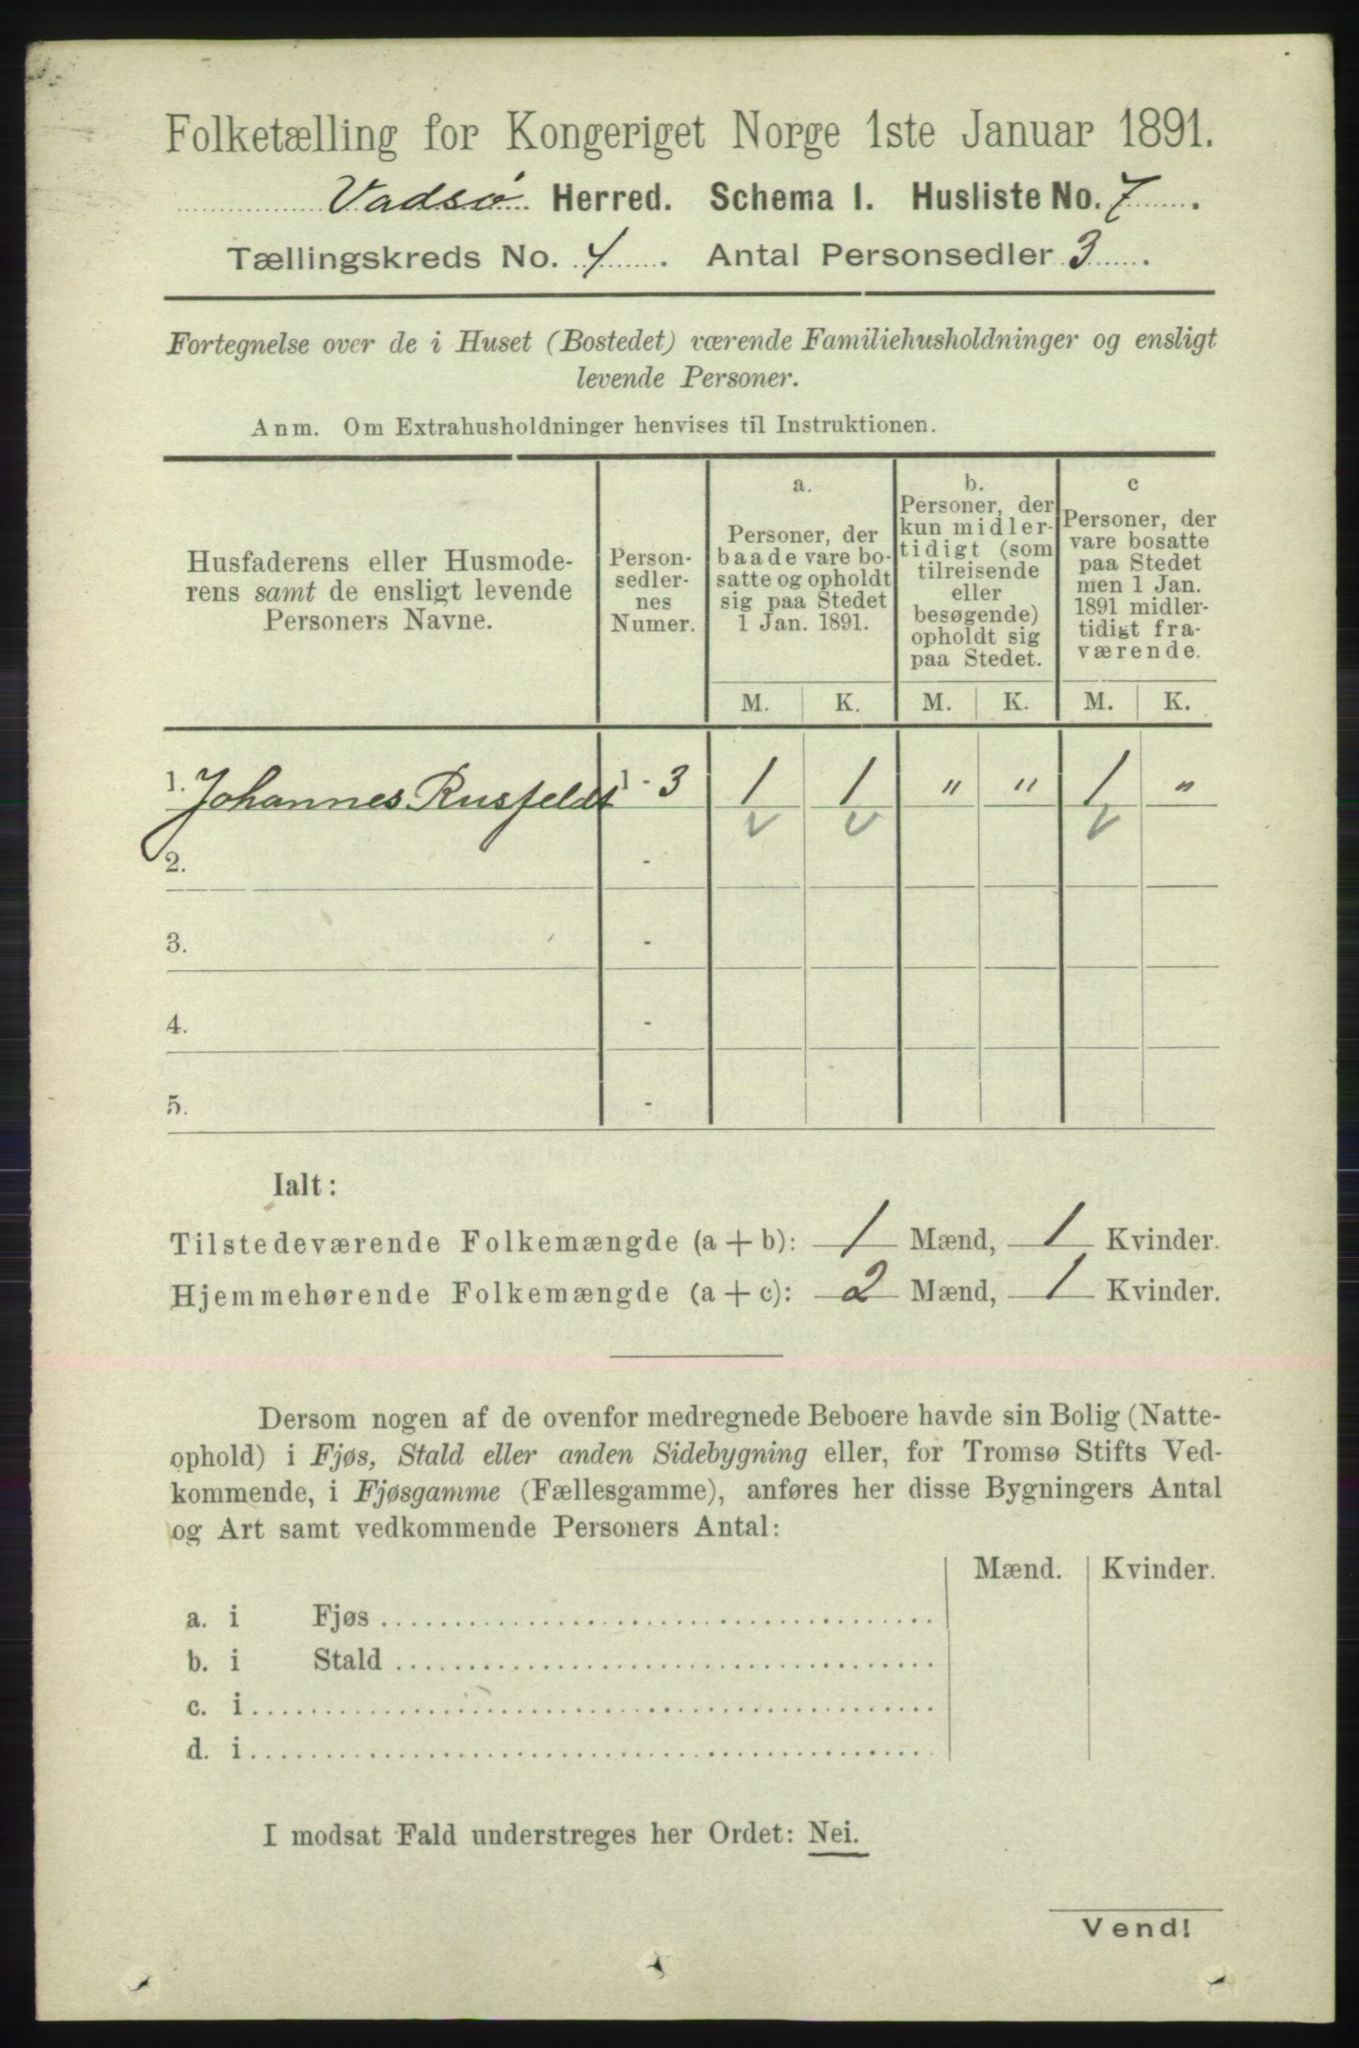 Folketælling for Kongeriget Norge 1ste Januar 1891.
Vadsø Herred. Schema I. Husliste No. 7.
Tællingskreds No. 4. Antal Personsedler 3.
Fortegnelse over de i Huset (Bostedet) værende Familiehusholdninger og ensligt
levende Personer.
Anm. Om Extrahusholdninger henvises til Instruktionen.
Husfaderens eller Husmode-
rens samt de ensligt levende
Personers Navne.
Person-
sedler-
nes
Numer.
a.
Personer, der
baade vare bo-
satte og opholdt
sig paa Stedet
1 Jan. 1891.
b.
Personer, der
kun midler-
tidigt (som
tilreisende
eller
besøgende)
opholdt sig
paa Stedet.
c
Personer, der
vare bosatte
paa Stedet
men 1 Jan.
1891 midler-
tidigt fra-
værende.
M. K. M. K. M. K.
1. Johannes Rusfeldt 1 - 3 1 1 " " 1 "
2. -
3. -
4. -
5. -
Ialt:
Tilstedeværende Folkemængde (a + b): 1 Mænd, 1 Kvinder.
Hjemmehørende Folkemængde (a + c): 2 Mænd, 1 Kvinder.
Dersom nogen af de ovenfor medregnede Beboere havde sin Bolig (Natte-
ophold) i Fjøs, Stald eller anden Sidebygning eller, for Tromsø Stifts Ved-
kommende, i Fjøsgamme (Fællesgamme), anføres her disse Bygningers Antal
og Art samt vedkommende Personers Antal:
Mænd. Kvinder.
a. i Fjøs
b. i Stald
c. i
d. i
I modsat Fald understreges her Ordet: Nei.
Vend!